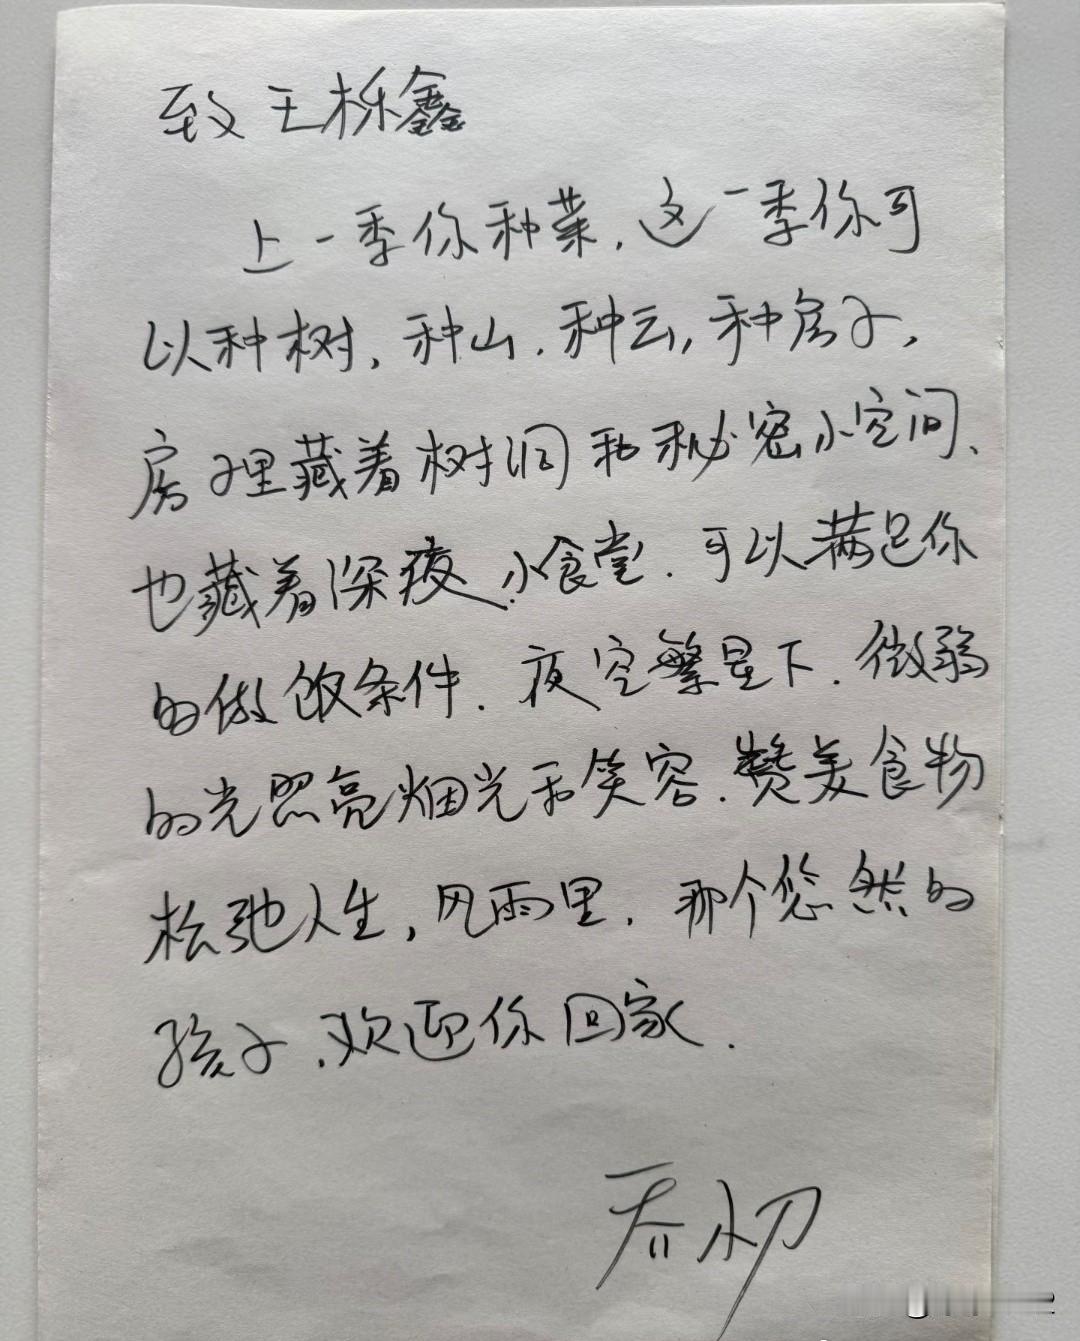 致王栎鑫
上一季你种菜,这一季你可
以种树,种山,种云,种房子,
房子里藏着树洞和秘密小空间、
也藏着深夜小食堂.可以满足你
的做饭条件.夜空繁星下.微弱
的光照亮烟光和笑容.赞美食物
松弛人生,风雨里.那个悠然的
孩子.欢迎你回家.